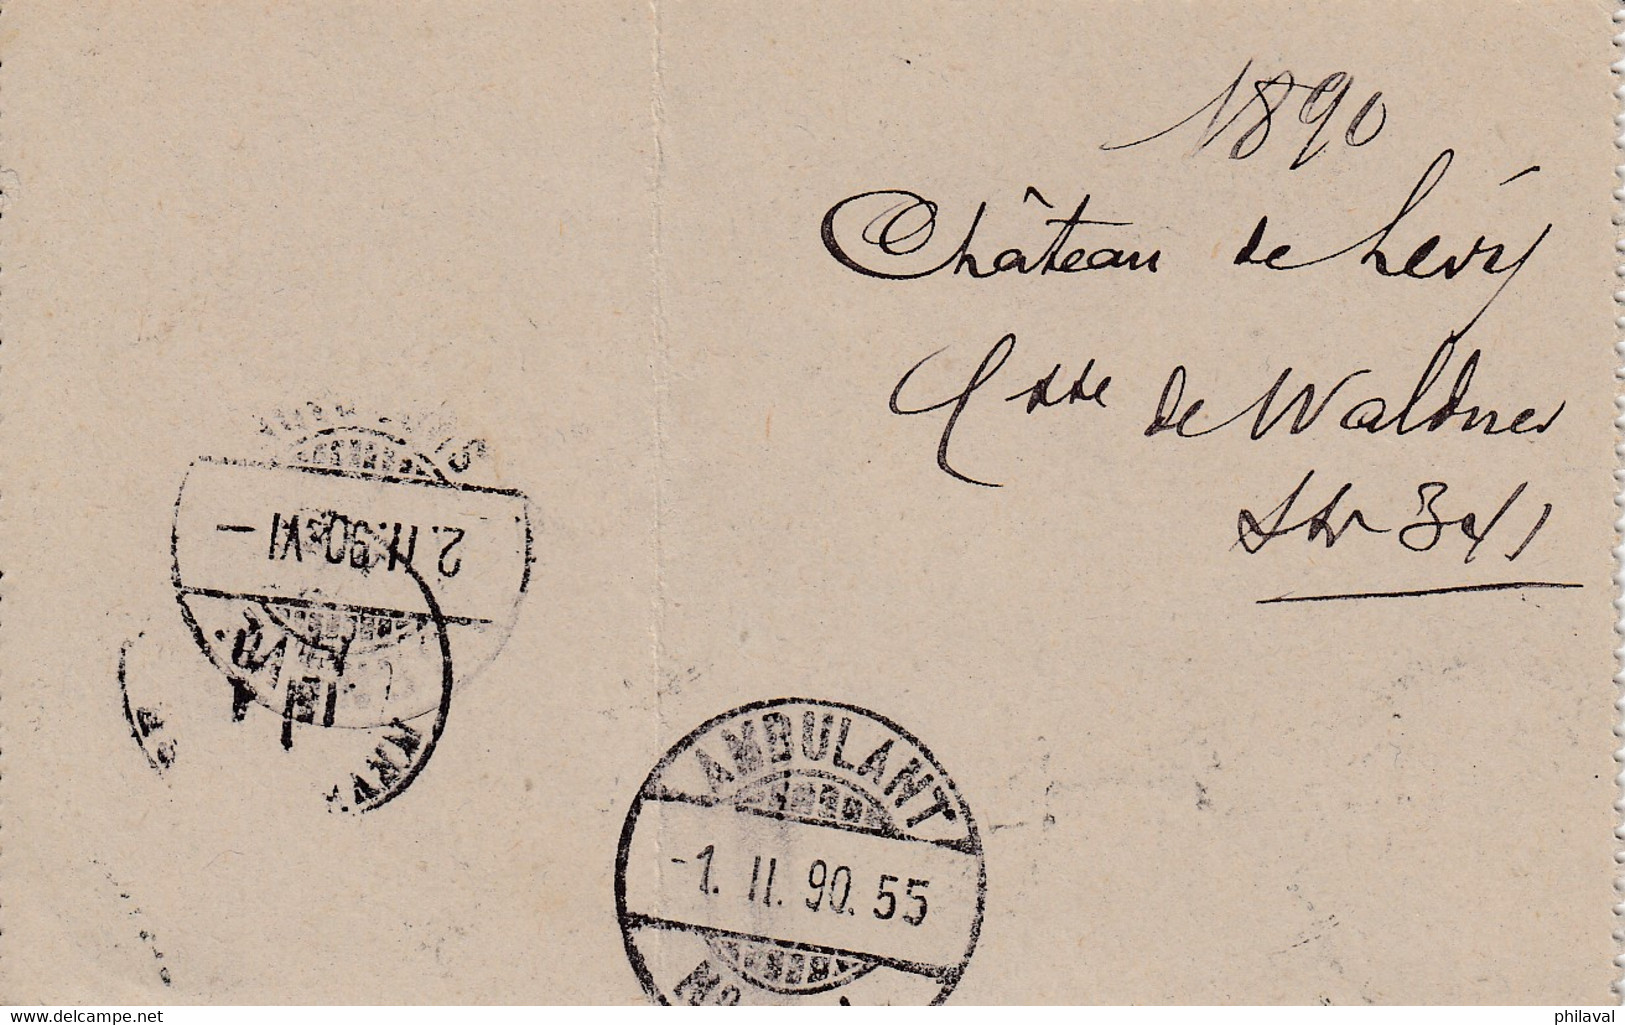 1890
Château de Lévy
Csse de Waldner
341
2.II.90.VI –
AMBULANT
-1. II. 90. 55
www.delcampe.net
philaval